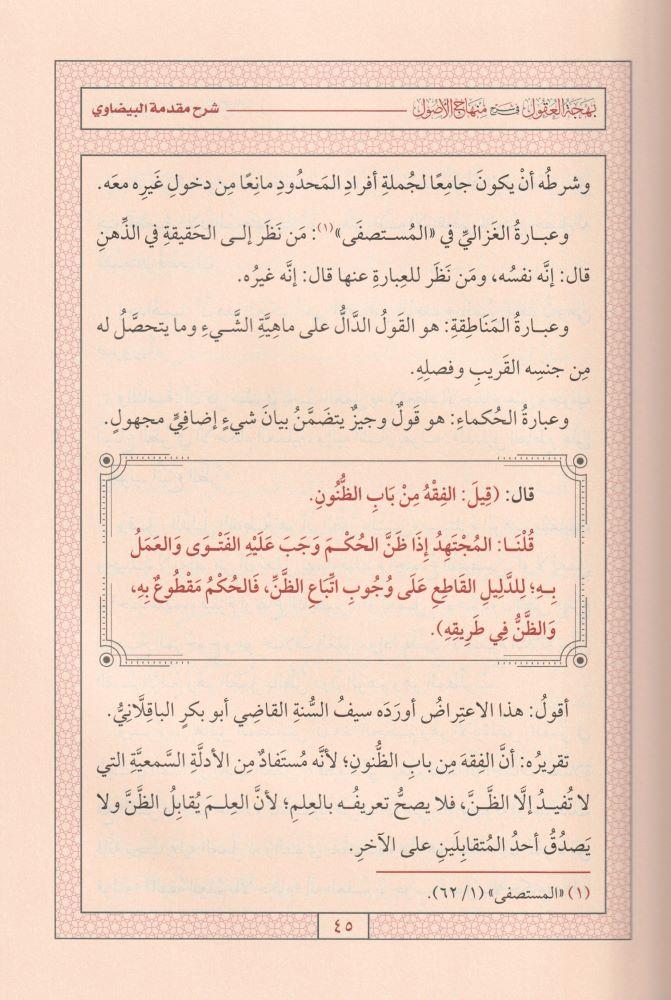 بهجة العقول في شرح منهاج الأصول
شرح مقدمة البيضاوي
وشرطُه أنْ يكونَ جامِعًا لجُملةِ أفرادِ المَحدُودِ مانِعًا مِن دخولِ غَيرِه معَه.
وعبارةُ الغَزاليِّ في «المُستصفَى»(١): مَن نَظَر إلى الحَقيقةِ في الذِّهنِ
قال: إنَّه نفسُه، ومَن نَظَر للعِبارةِ عنها قال: إنَّه غيرُه.
وعبارةُ المَنَاطِقةِ: هو القَولُ الدَّالُّ على ماهِيَّةِ الشَّيءِ وما يتحصَّلُ له
مِن جنسِه القَريبِ وفصلِهِ.
وعبارةُ الحُكماءِ: هو قَولٌ وجيزٌ يتضَمَّنُ بيانَ شيءٍ إضافيٍّ مجهولٍ.
قال: (قِيلَ: الفِقْهُ مِنْ بَابِ الظُّنُونِ.
قُلْنَا: المُجْتَهِدُ إذَا ظَنَّ الحُكْمَ وَجَبَ عَلَيْهِ الفَتْوَى وَالعَمَلُ
بِهِ؛ لِلدَّلِيلِ القَاطِعِ عَلَى وُجُوبِ اتِّبَاعِ الظَّنِّ، فَالحُكْمُ مَقْطُوعٌ بِهِ،
وَالظَّنُّ فِي طَرِيقِهِ).
أقولُ: هذا الاعتِراضُ أورَدَه سيفُ السُّنةِ القاضِي أبو بكرٍ الباقِلَّانِيُّ.
تقريرُه: أنَّ الفِقهَ مِن بابِ الظُّنونِ؛ لأنَّه مُستَفادٌ مِن الأدلَّةِ السَّمعيَّةِ التي
لا تُفيدُ إلَّا الظَّنَّ، فلا يصحُّ تعريفُه بالعِلمِ؛ لأنَّ العِلمَ يُقابِلُ الظَّنَّ ولا
يَصدُقُ أحدُ المُتقابِلَينِ على الآخرِ.
(١) «المستصفى» (١/ ٦٢).
٤٥